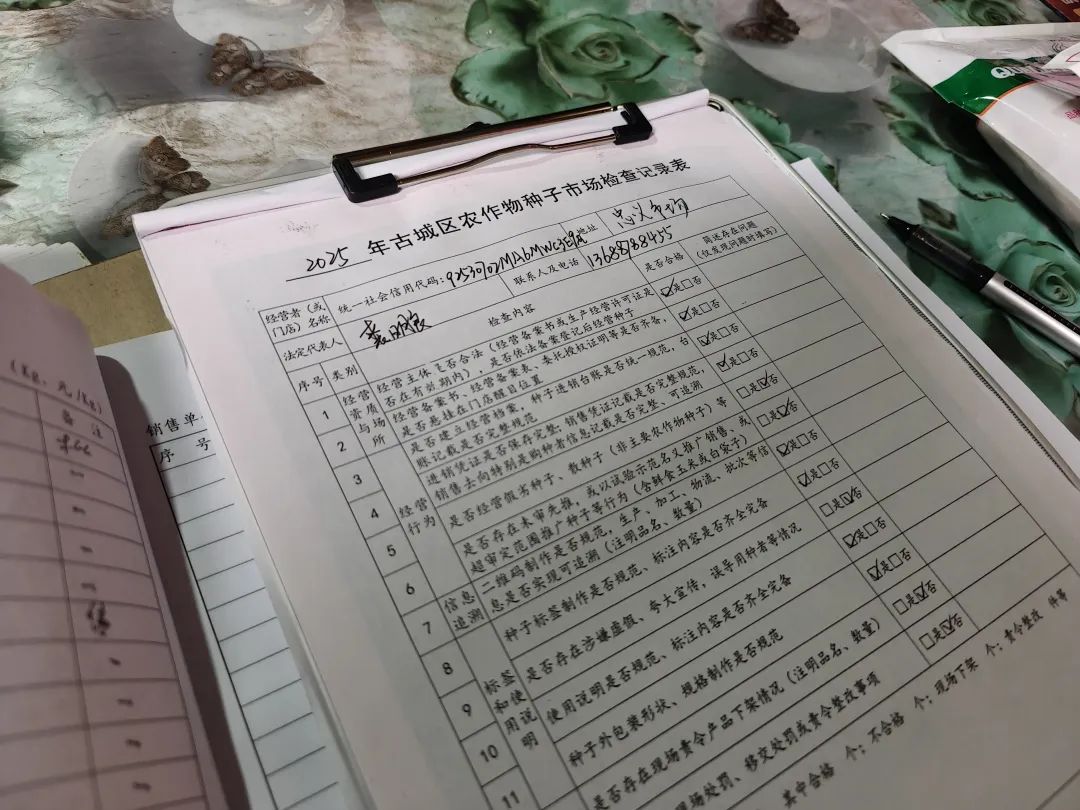 2025 年古城区农作物种子市场检查记录表
经营者（或门店）名称
统一社会信用代码：
地址
忠义市场
法定代表人
联系人及电话
13688788455
序号
类别
检查内容
是否合格
简述存在问题（仅发现问题时填写）
1
经营资质与场所
经营主体是否合法（经营备案书或生产经营许可证是否在有效期内），是否依法备案登记后经营种子
☑是□否
2
经营备案书、经营备案表、委托授权证明等是否齐备，是否悬挂在门店醒目位置
☑是□否
3
经营行为
是否建立经营档案，种子进销台账是否统一规范，台账记载是否完整规范
☑是□否
4
进销凭证是否保存完整，销售凭证记载是否完整规范，销售去向特别是购种者信息记载是否完整、可追溯
☑是□否
5
是否经营假劣种子、散种子（非主要农作物种子）等
□是☑否
6
是否存在未审先推，或以试验示范名义推广销售，或超审定范围推广种子等行为（含鲜食玉米或白袋子）
□是☑否
7
信息追溯
二维码制作是否规范，生产、加工、物流、批次等信息是否实现可追溯（注明品名、数量）
☑是□否
8
标签和使用说明
种子标签制作是否规范、标注内容是否齐全完备
☑是□否
9
是否存在涉嫌虚假、夸大宣传，误导用种者等情况
□是☑否
10
使用说明是否规范、标注内容是否齐全完备
☑是□否
11
种子外包装形状、规格制作是否规范
☑是□否
是否存在现场责令产品下架情况（注明品名、数量）
□是☑否
现场处罚、移交处罚或责令整改事项
□是☑否
其中合格 个；不合格 个；现场下架 个；责令整改 件等
(kg、元/kg)
备注
销售单
序号